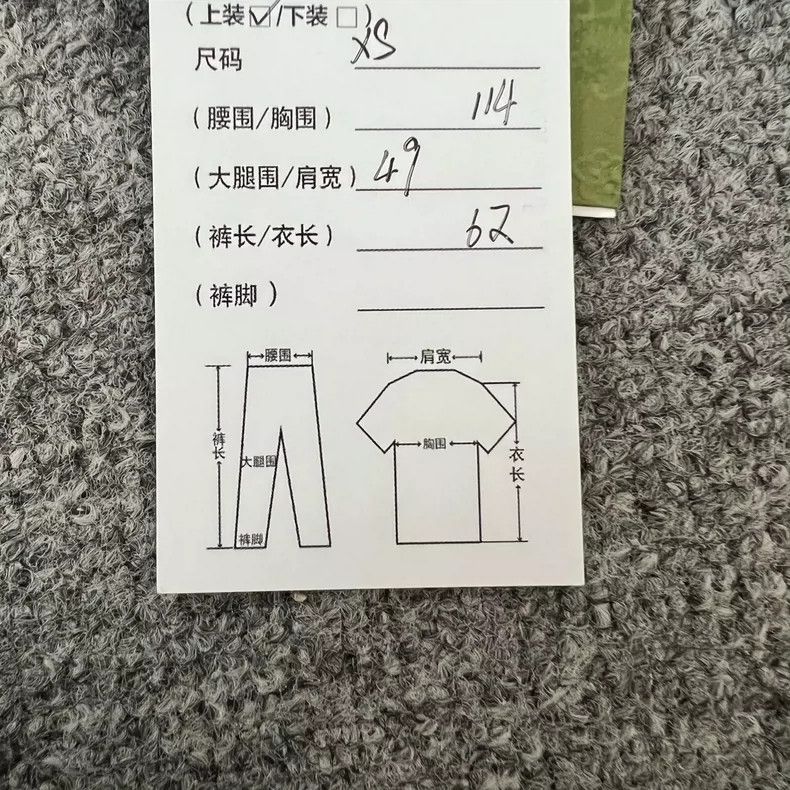 （上装☑/下装☐）
尺码 XS
（腰围/胸围） 114
（大腿围/肩宽） 49
（裤长/衣长） 62
（裤脚）
腰围
肩宽
裤长
大腿围
裤脚
胸围
衣长